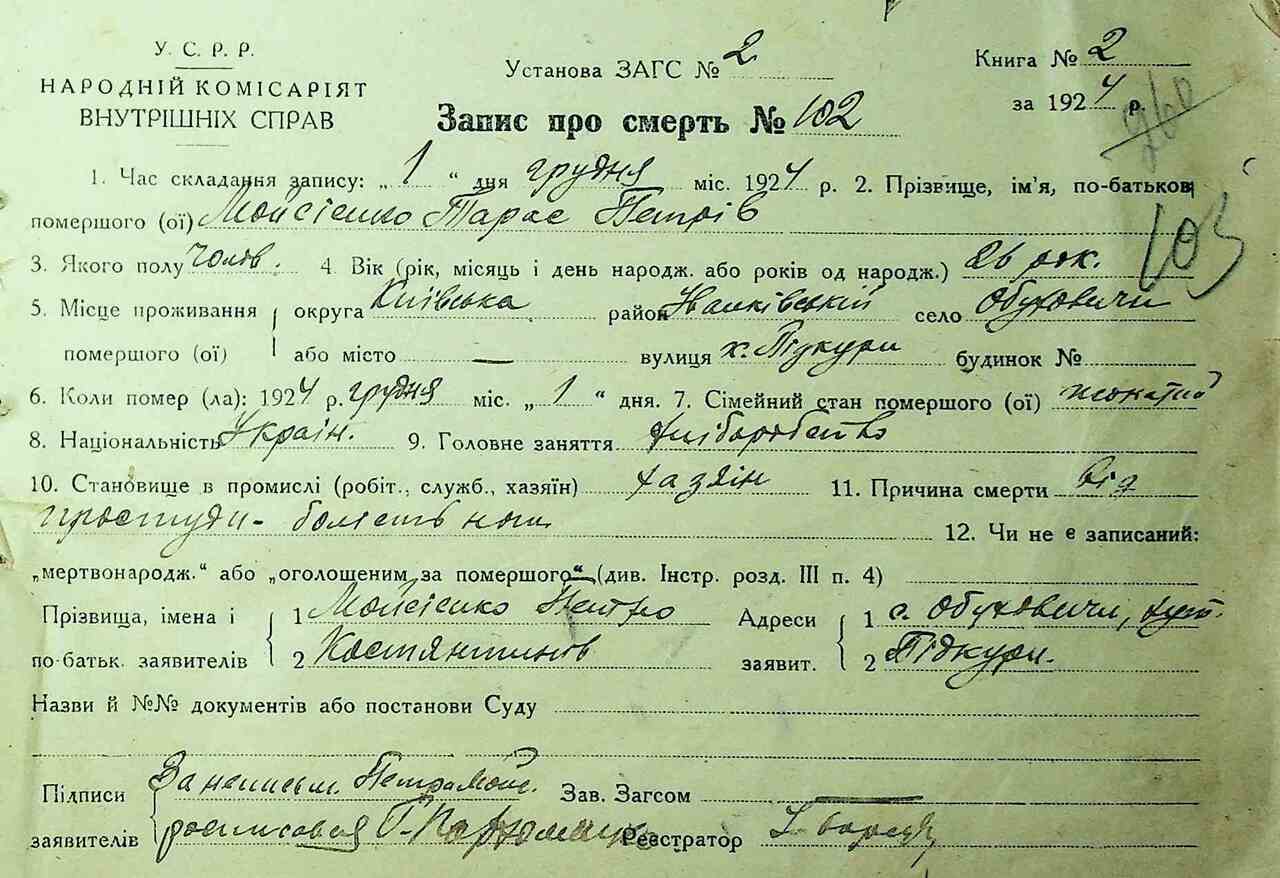 У. С. Р. Р.
НАРОДНІЙ КОМІСАРІЯТ
ВНУТРІШНІХ СПРАВ
Установа ЗАГС № 2
Книга № 2
за 1924 р.
260
Запис про смерть № 102
1. Час складання запису: „ 1 “ дня грудня міс. 1924 р. 2. Прізвище, ім'я, по-батькові
помершого (ої) Мойсієнко Тарас Петрів
103
3. Якого полу чолов. 4. Вік (рік, місяць і день народж. або років од народж.) 26 рок.
5. Місце проживання округа Київська район Іванківський село Обуховичи
помершого (ої) або місто — вулиця х. Підкури будинок №
6. Коли помер (ла): 1924 р. грудня міс. „ 1 “ дня. 7. Сімейний стан помершого (ої) жонатий
8. Національність Україн. 9. Головне заняття хліборобство
10. Становище в промислі (робіт., служб., хазяїн) хазяїн 11. Причина смерти від
простуди - болість ног 12. Чи не є записаний:
„мертвонародж.“ або „оголошеним за помершого“ (див. Інстр. розд. III п. 4)
Прізвища, імена і 1 Мойсієнко Петро Адреси 1 с. Обуховичи, хут.
по-батьк. заявителів 2 Костянтинів заявит. 2 Підкури.
Назви й №№ документів або постанови Суду
Підписи За неписьм. Петра Мойс. Зав. Загсом —
заявителів росписався Г. Реєстратор